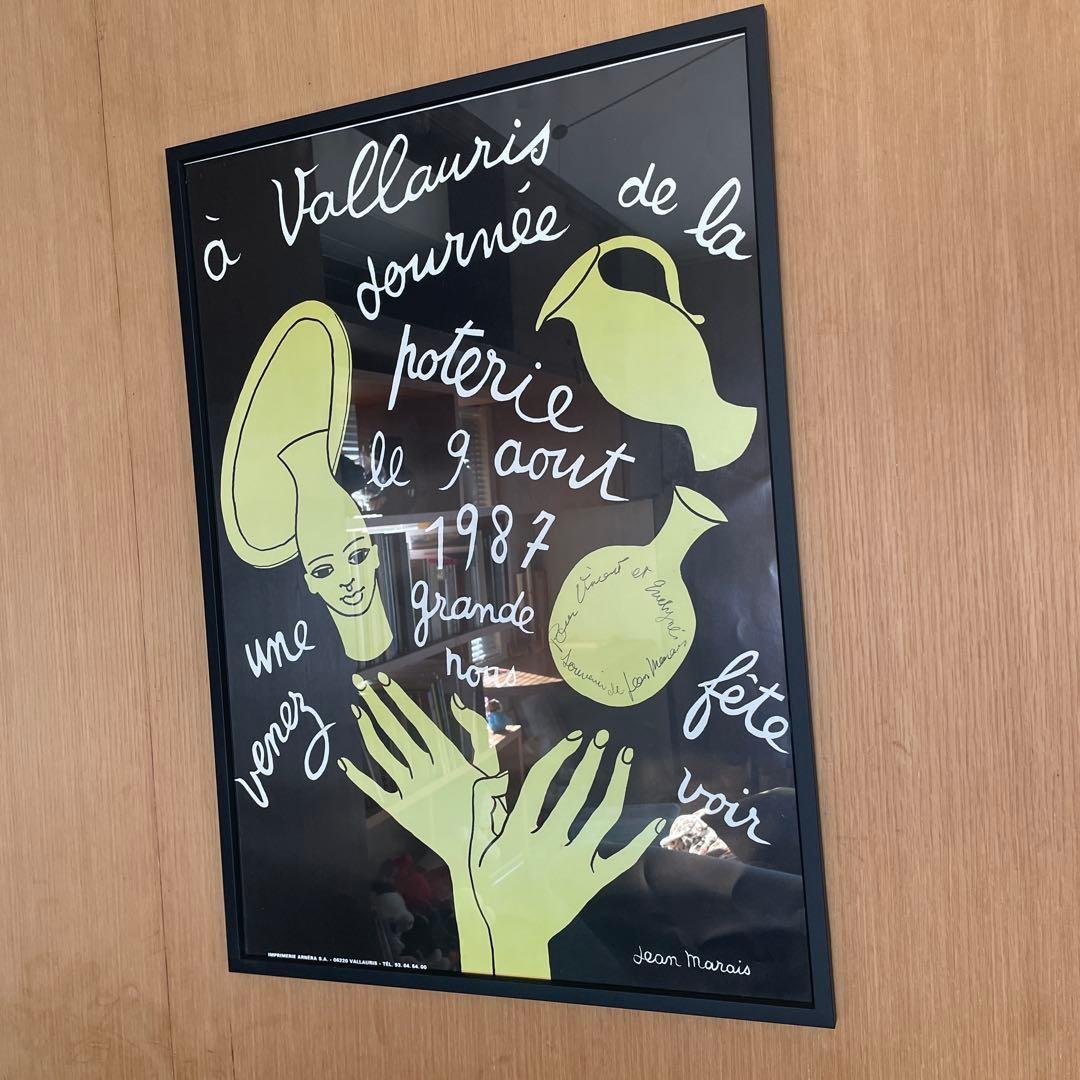 à Vallauris
journée de la
poterie
le 9 aout
1987
une grande fête
venez nous voir
Pour Vincent et
Souvenir de Jean Marais
IMPRIMERIE ARNÉRA S.A. - 06220 VALLAURIS - TÉL. 93. 64. 64. 00
Jean Marais